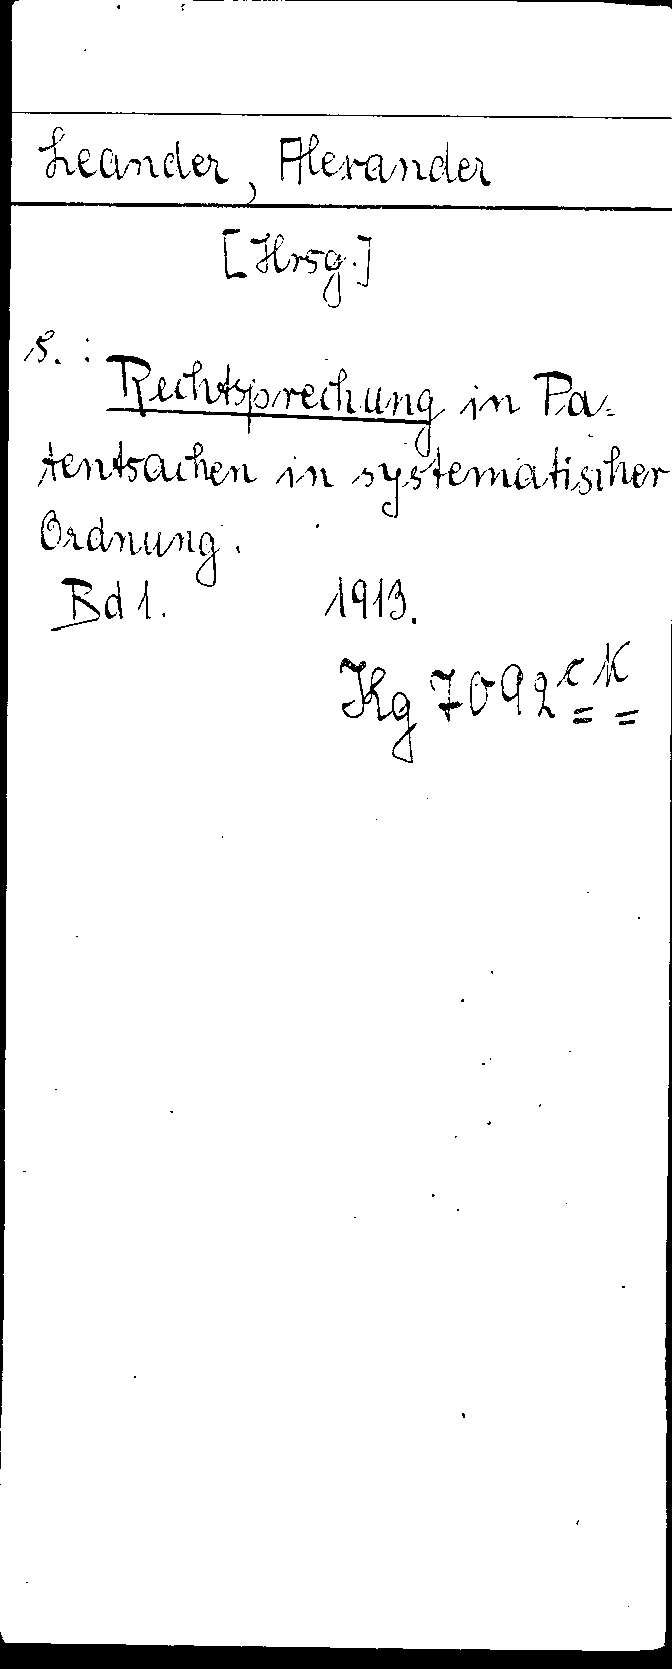 Leander, Alexander
[Hrsg.]
s. :
Rechtsprechung in Pa-
tentsachen in systematischer
Ordnung.
Bd 1. 1913.
Kg 7092 c K